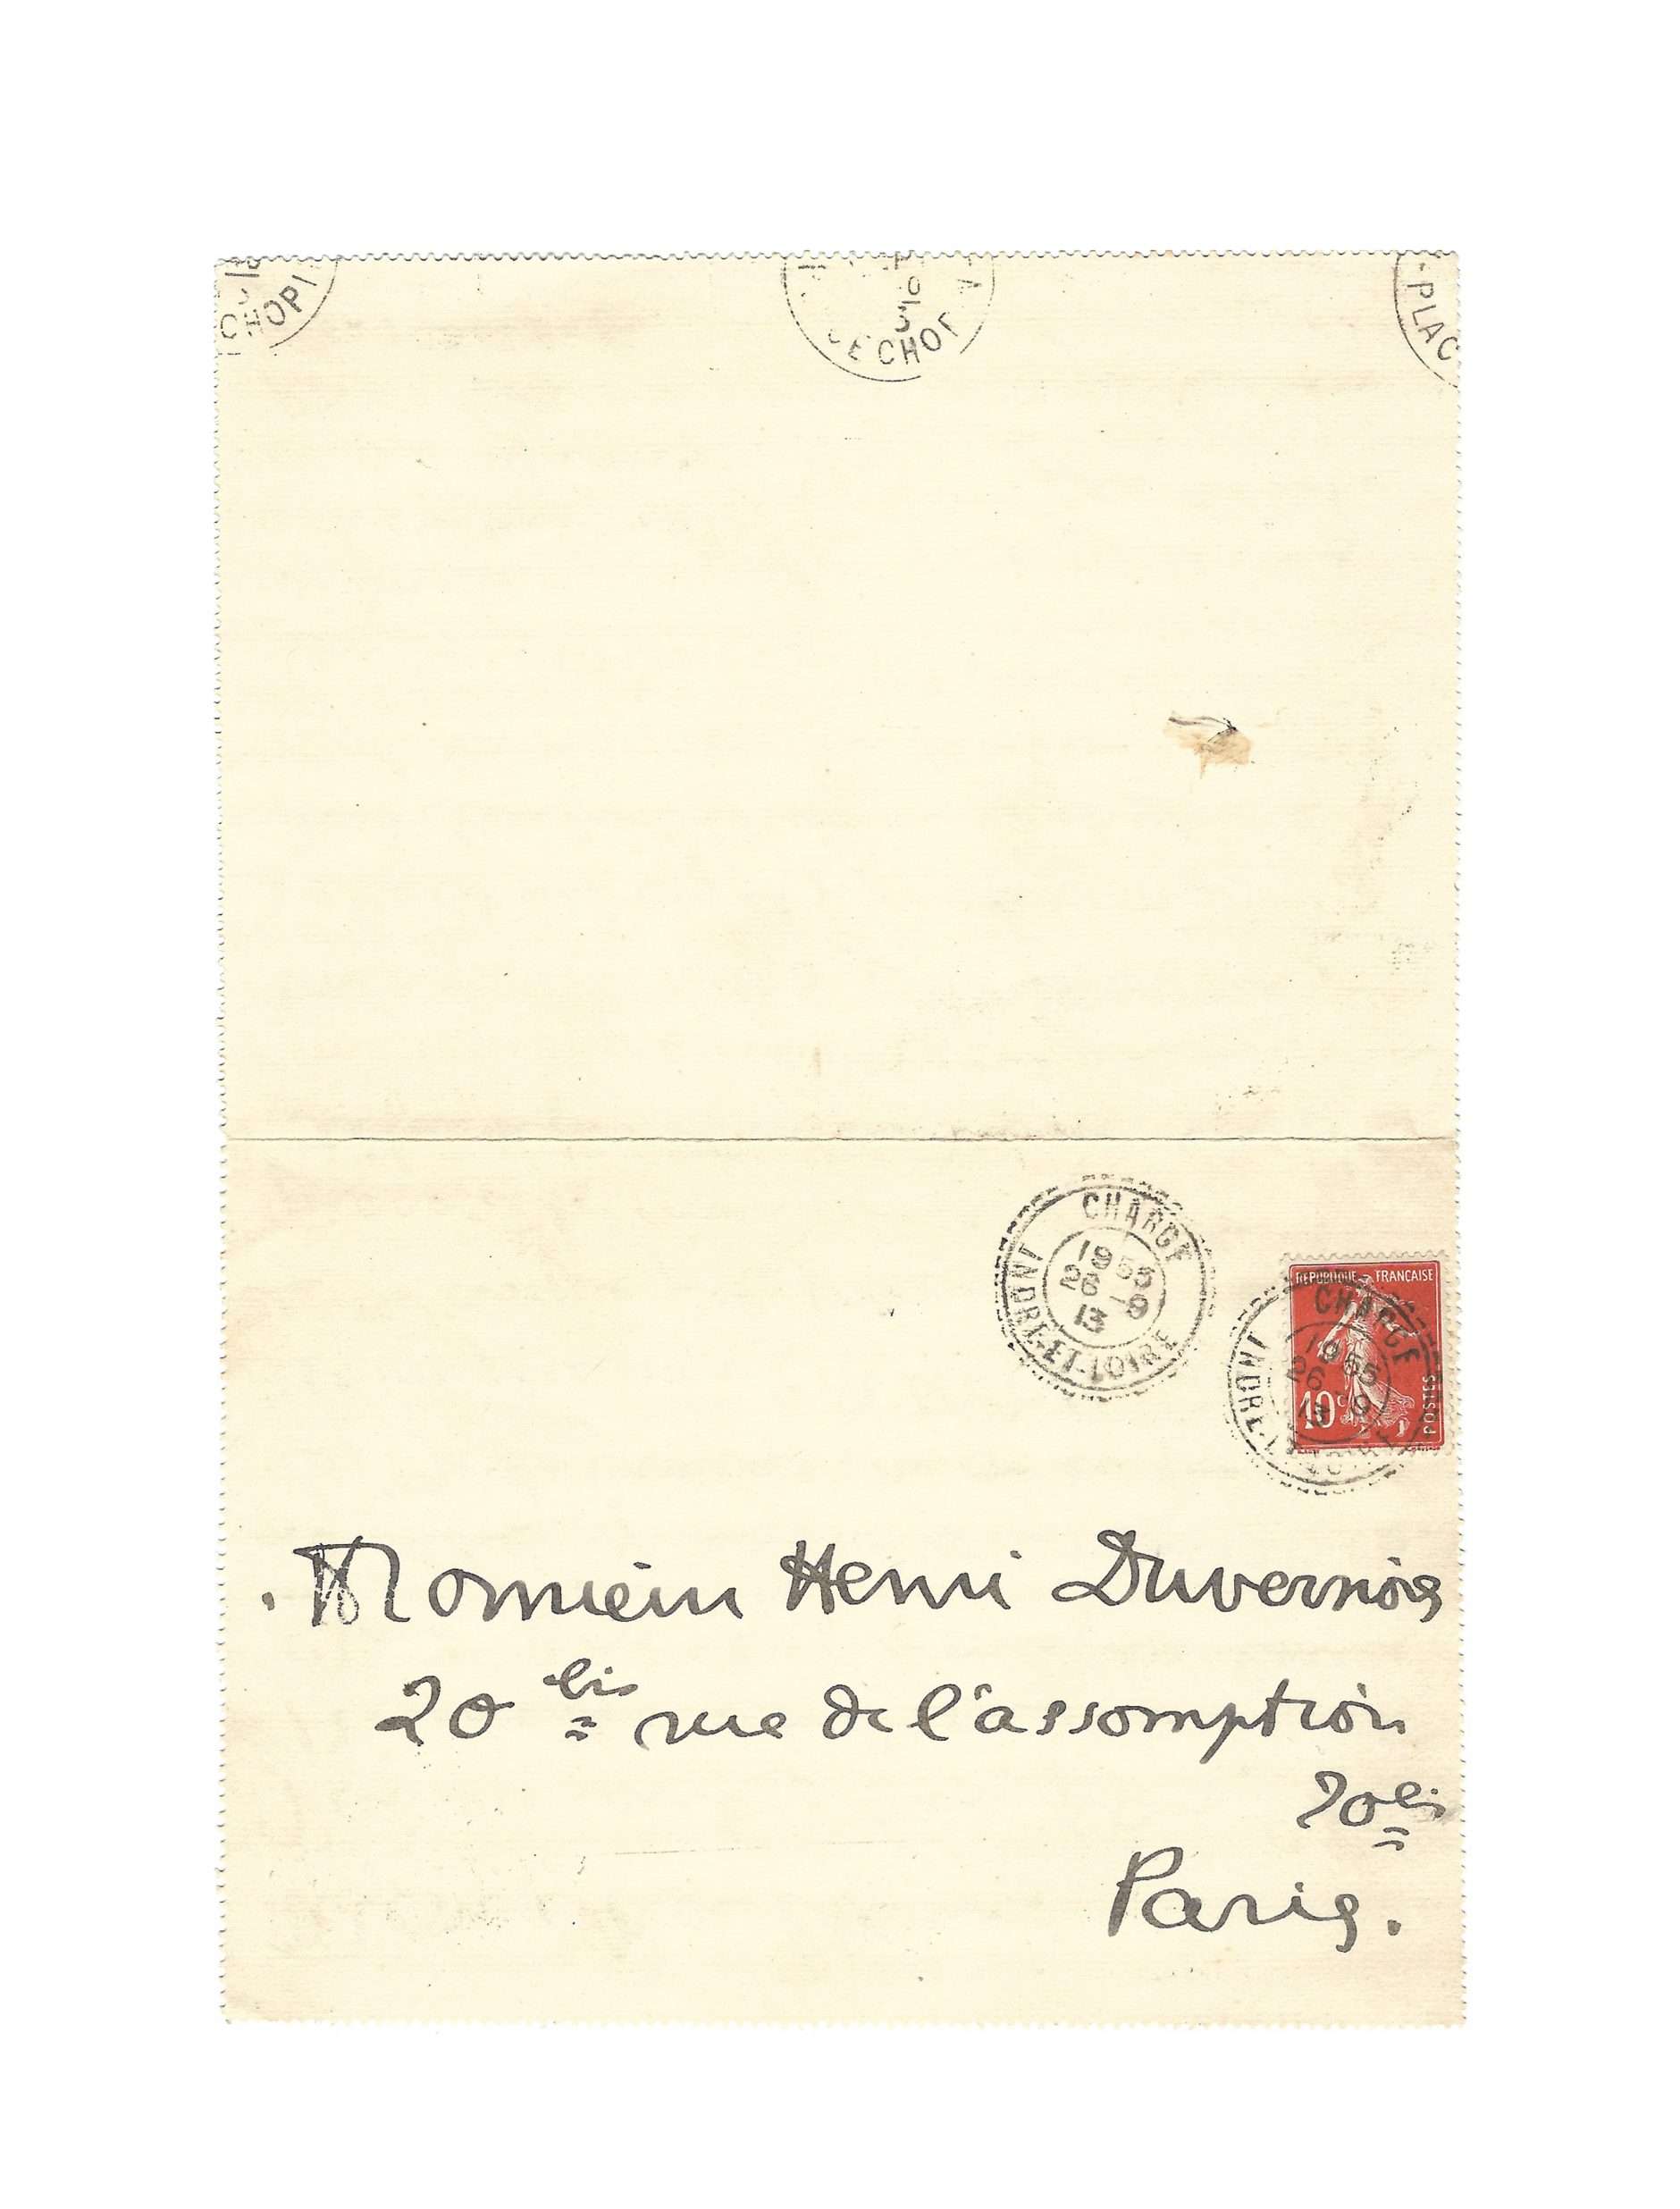 CHOPI
E CHOP
-PLAC
CHARGE
19 55
26 -9
13
INDRE-ET-LOIRE
REPUBLIQUE FRANÇAISE
CHARGE
19 55
26 -9
13
10c
POSTES
INDRE-ET-LOIRE
Monsieur Henri Duvernois
20 bis rue de l'assomption
20 bis
Paris.